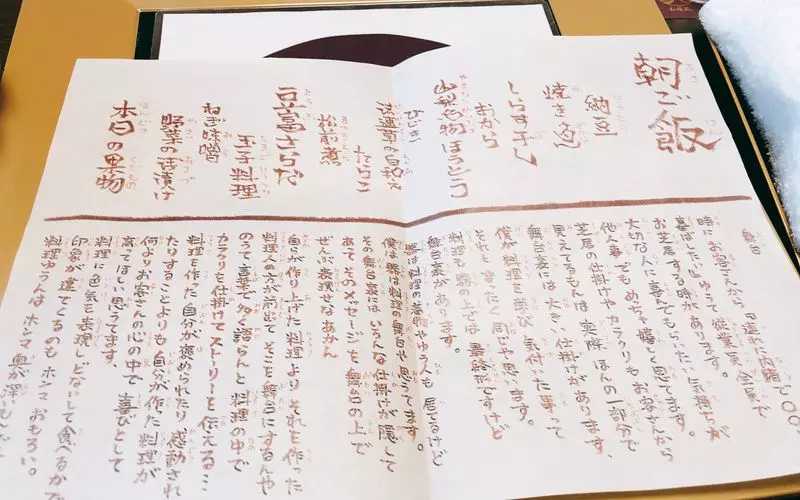 朝ご飯
納豆
焼き
しらす干し
おから
山梨名物ほうとう
ひじき
法蓮草の白和え
たらこ
松前煮
豆富さらだ
玉子料理
ねぎ味噌
野菜の浅漬け
本日の果物
舞台
時にお客さんから「連れに内緒で〇〇
喜ばしたい」ゆうて 従業員全員で
お芝居する時があります。
大切な人に喜んでもらいたい 気持ちが
他人事でもめちゃ嬉しく思てます。
芝居の仕掛けや カラクリも お客さんから
見えてるもんは 実際ほんの一部分で
舞台裏には大きい仕掛けがあります。
僕が料理を学び 気付いた事って
それと まったく 同じやと思います。
料理も 器の上では 最終形ですけど
舞台裏があります。
器は料理の着物やゆう人も 居てるけど
僕は器は料理の舞台や思うてます。
その舞台裏には いろんな仕掛けが 隠して
あって そのメッセージを 舞台の上で
ぜんぶ表現せなあかん
自らが作り上げた料理より それを作った
料理人の方が前出て そこを舞台にするんや
のうて 言葉で多く語らんと 料理の中で
カラクリを仕掛けて ストーリーを 伝える…
料理を作った自分が褒められたり 感動され
たりすることよりも 自らが作った料理が
何よりお客さんの心の中で 喜びとして
育てほしい 思うてます。
料理に色気を表現し どないして食べるかで
印象が違てくるのも ホンマ おもろい。
料理ゆうんは ホンマ 奥が深い